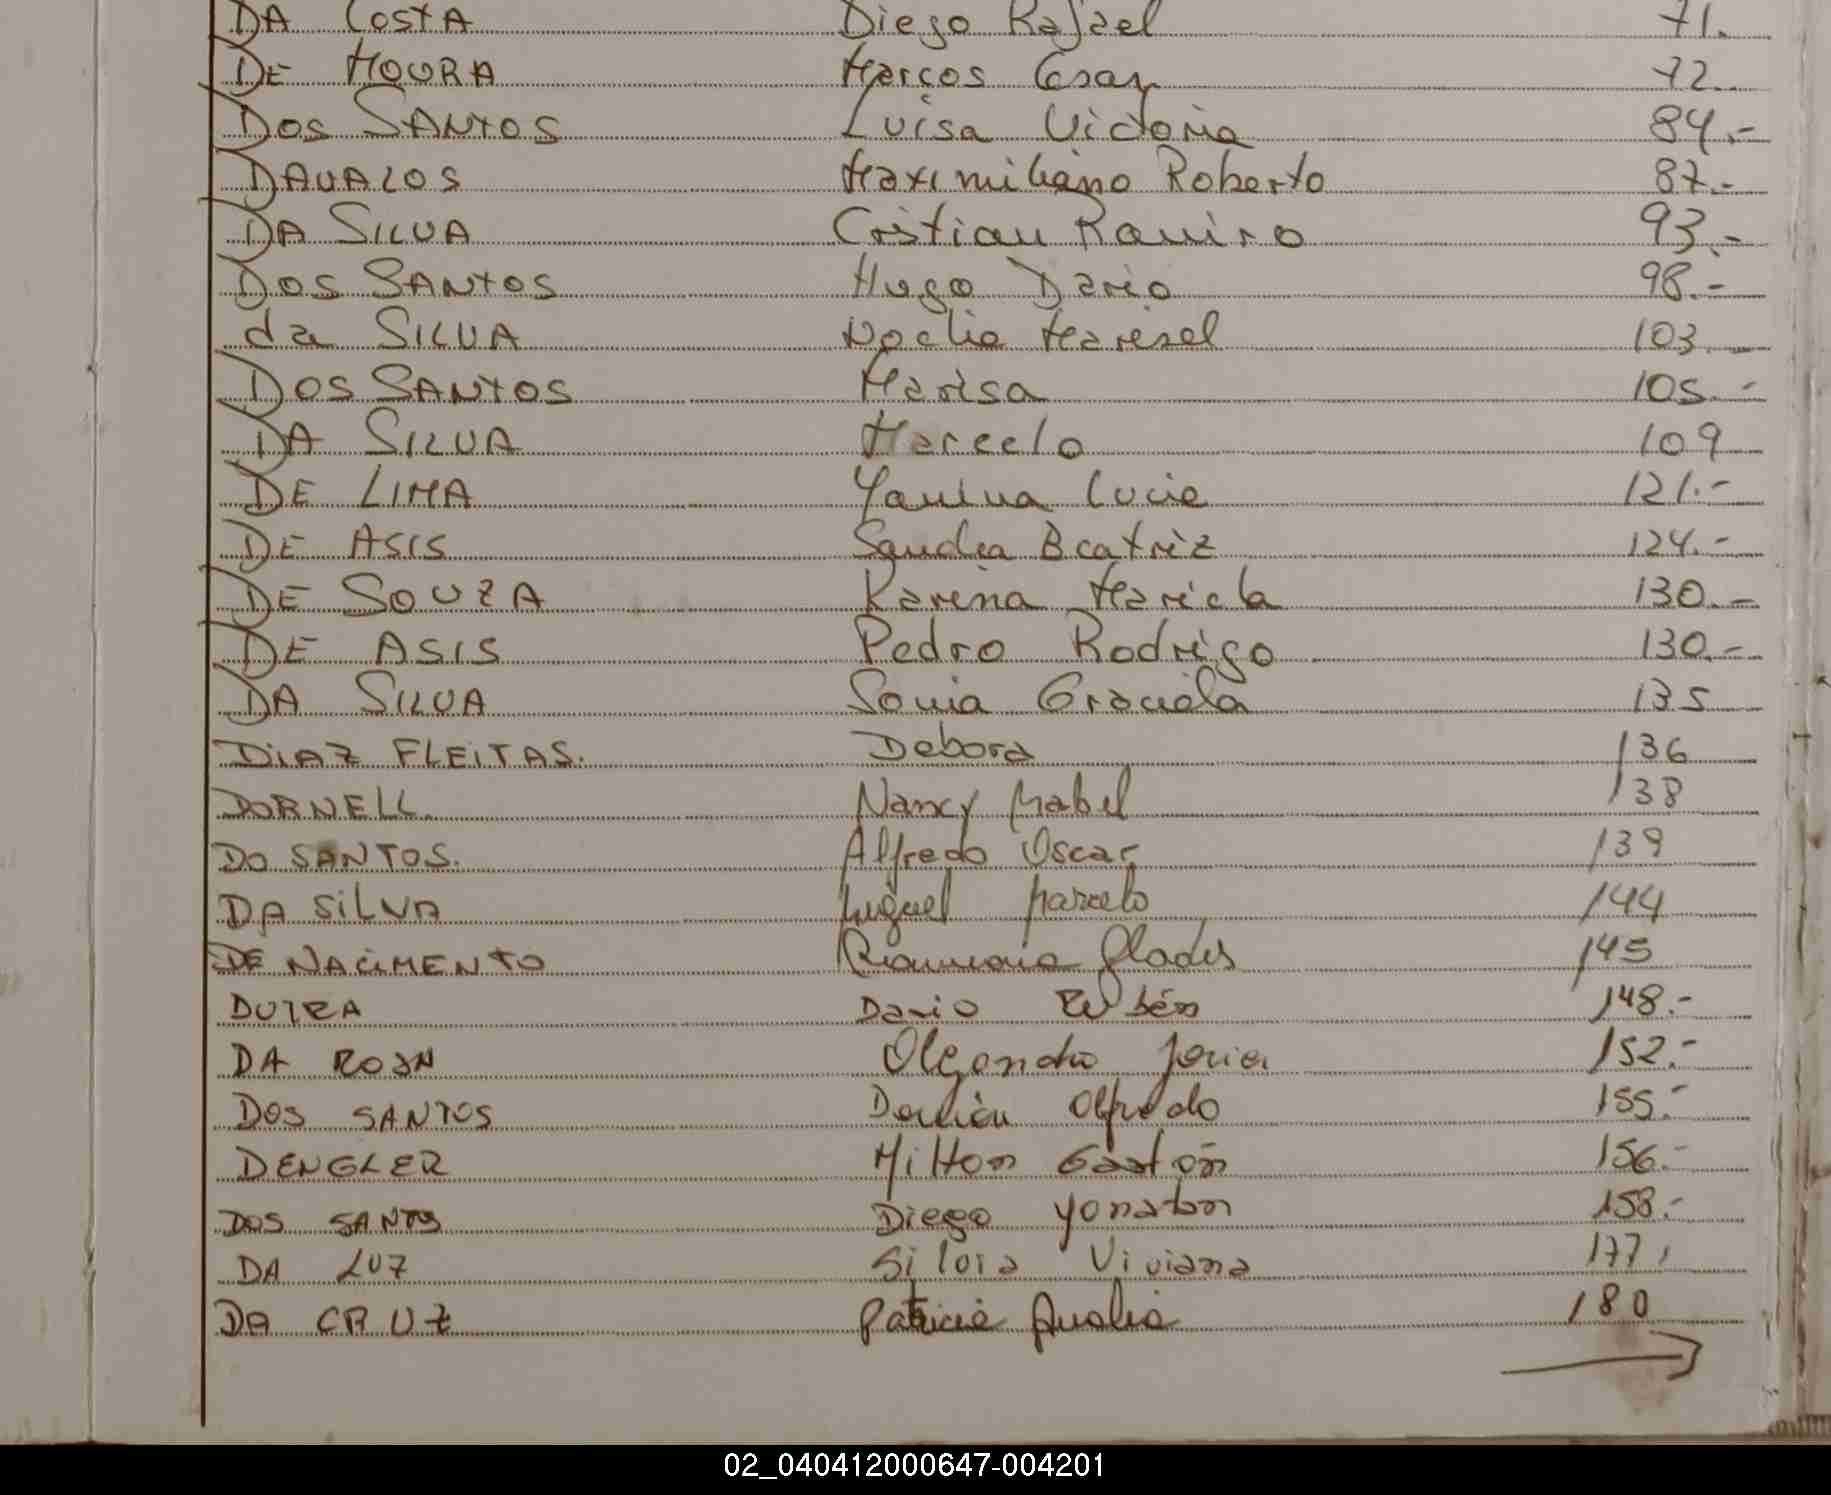 DA COSTA Diego Rafael 71.
DE MOURA Marcos Cesar 72.
DOS SANTOS Luisa Victoria 84.-
DAVALOS Maximiliano Roberto 87.-
DA SILVA Cristian Ramiro 93.-
DOS SANTOS Hugo Dario 98.-
da SILVA Noelia Marisel 103
DOS SANTOS Marisa 105.-
DA SILVA Marcelo 109
DE LIMA Yanina Lucia 121.-
DE ASIS Sandra Beatriz 124.-
DE SOUZA Karina Mariela 130.-
DE ASIS Pedro Rodrigo 130.-
DA SILVA Sonia Graciela 135
DiAZ FLEiTAS. Debora 136
DORNELL. Nancy Mabel 138
DO SANTOS. Alfredo Oscar 139
DA SiLVA Miguel Marcelo 144
DE NACiMENTO Ramona Gladis 145
DUTRA Dario Rubén 148.-
DA ROSA Alejandro Javier 152.-
DOS SANTOS Damián Alfredo 155.-
DENGLER Milton Gastón 156.-
DOS SANTOS Diego Yonatan 158.-
DA LUZ Silvia Viviana 177.
DA CRUZ Patricia Analia 180
02_040412000647-004201